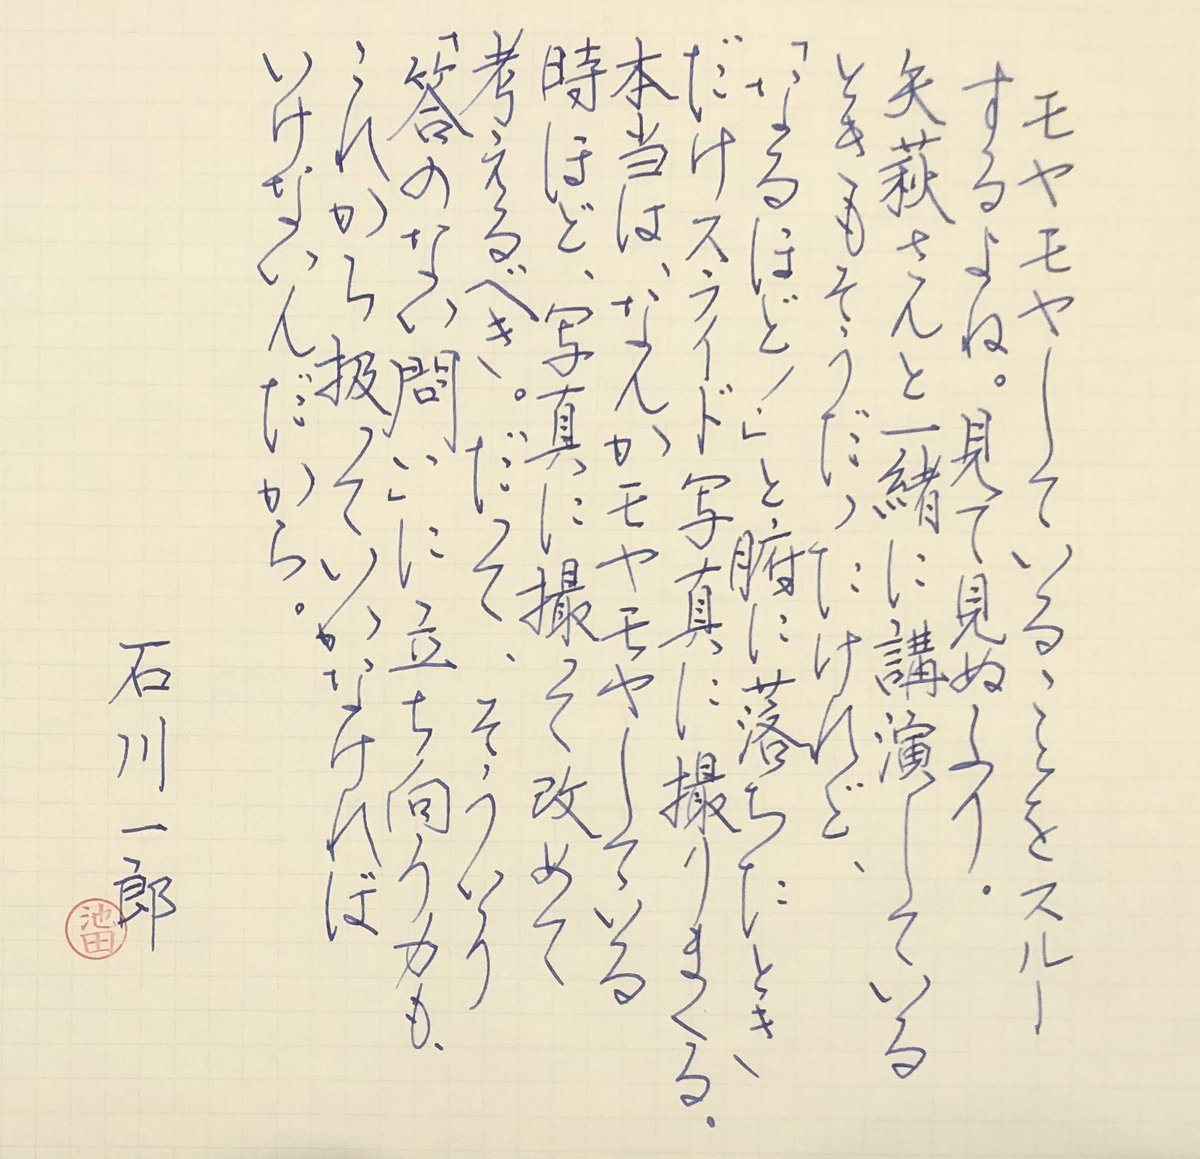 モヤモヤしていることをスルー
するよね。見て見ぬふり。
矢萩さんと一緒に講演している
ときもそうだったけれど、
「なるほど！」と腑に落ちたとき、
だけスライド写真に撮りまくる。
本当は、なんかモヤモヤしている
時ほど、写真に撮って改めて
考えるべき。だって、そういう
「答のない問い」に立ち向う力も、
これから扱っていかなければ
いけないんだから。
石川一郎
池田